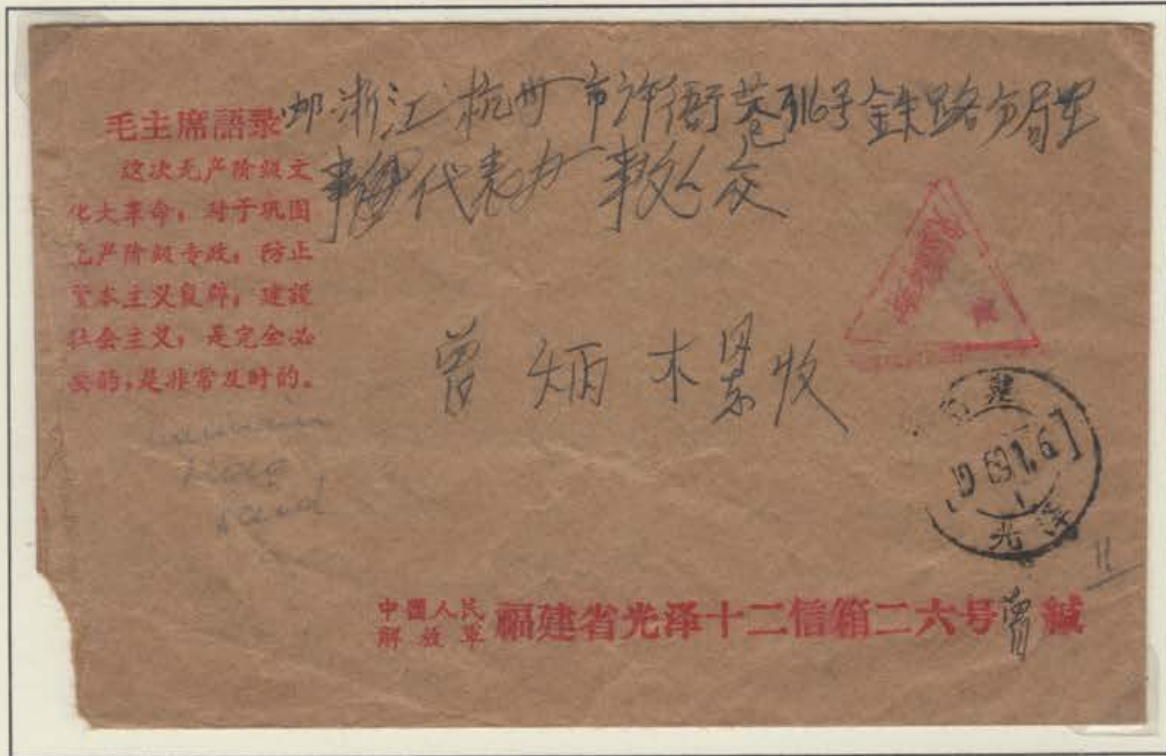 毛主席語录
这次无产阶级文
化大革命，对于巩固
无产阶级专政，防止
资本主义复辟，建设
社会主义，是完全必
要的，是非常及时的。
邮 浙江 杭州 市许衙巷 号 鉄路分局
代表办事处 交
曾 炳 木 收
福建
1969.1.6
光泽
11
中國人民
解放军 福建省光泽十二信箱二六号 曾 缄